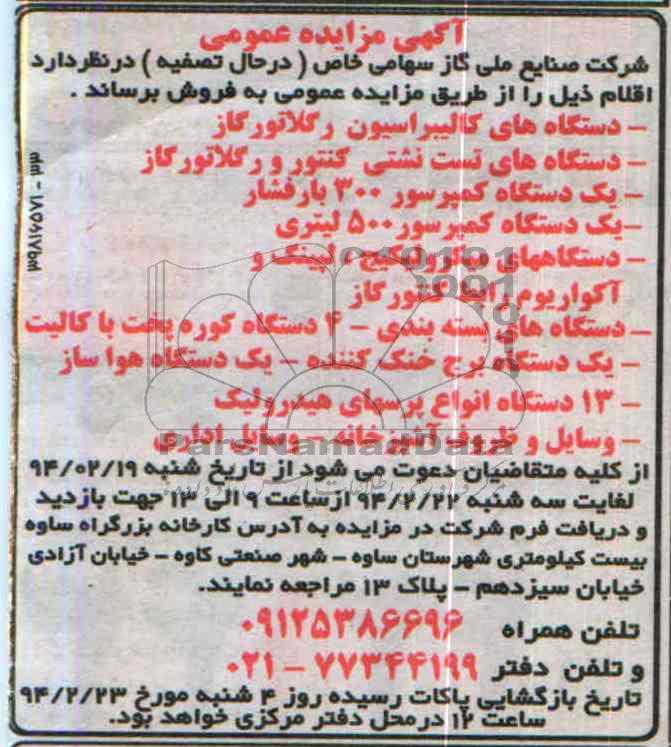 آگهی مزایده عمومی
شرکت صنایع ملی گاز سهامی خاص ( درحال تصفیه ) درنظردارد
اقلام ذیل را از طریق مزایده عمومی به فروش برساند .
- دستگاه های کالیبراسیون رگلاتورگاز
- دستگاه های تست نشتی کنتور و رگلاتورگاز
- یک دستگاه کمپرسور ۳۰۰ بارفشار
-یک دستگاه کمپرسور۵۰۰ لیتری
- دستگاههای میکروپکیج - لپینگ و
آکواریوم رابط کنتور گاز
- دستگاه های بسته بندی - ۴ دستگاه کوره پخت با کالیت
- یک دستگاه برج خنک کننده - یک دستگاه هوا ساز
- ۱۳ دستگاه انواع پرسهای هیدرولیک
- وسایل و ظروف آشپزخانه - وسایل اداری
ParsNamadData
از کلیه متقاضیان دعوت می شود از تاریخ شنبه ۹۴/۰۲/۱۹
لغایت سه شنبه ۹۴/۲/۲۲ ازساعت ۹ الی ۱۳ جهت بازدید
و دریافت فرم شرکت در مزایده به آدرس کارخانه بزرگراه ساوه
بیست کیلومتری شهرستان ساوه - شهر صنعتی کاوه - خیابان آزادی
خیابان سیزدهم - پلاک ۱۳ مراجعه نمایند.
تلفن همراه ۰۹۱۲۵۳۸۶۶۹۶
و تلفن دفتر ۷۷۳۴۴۱۹۹ - ۰۲۱
تاریخ بازگشایی پاکات رسیده روز ۴ شنبه مورخ ۹۴/۲/۲۳
ساعت ۱۲ درمحل دفتر مرکزی خواهد بود.